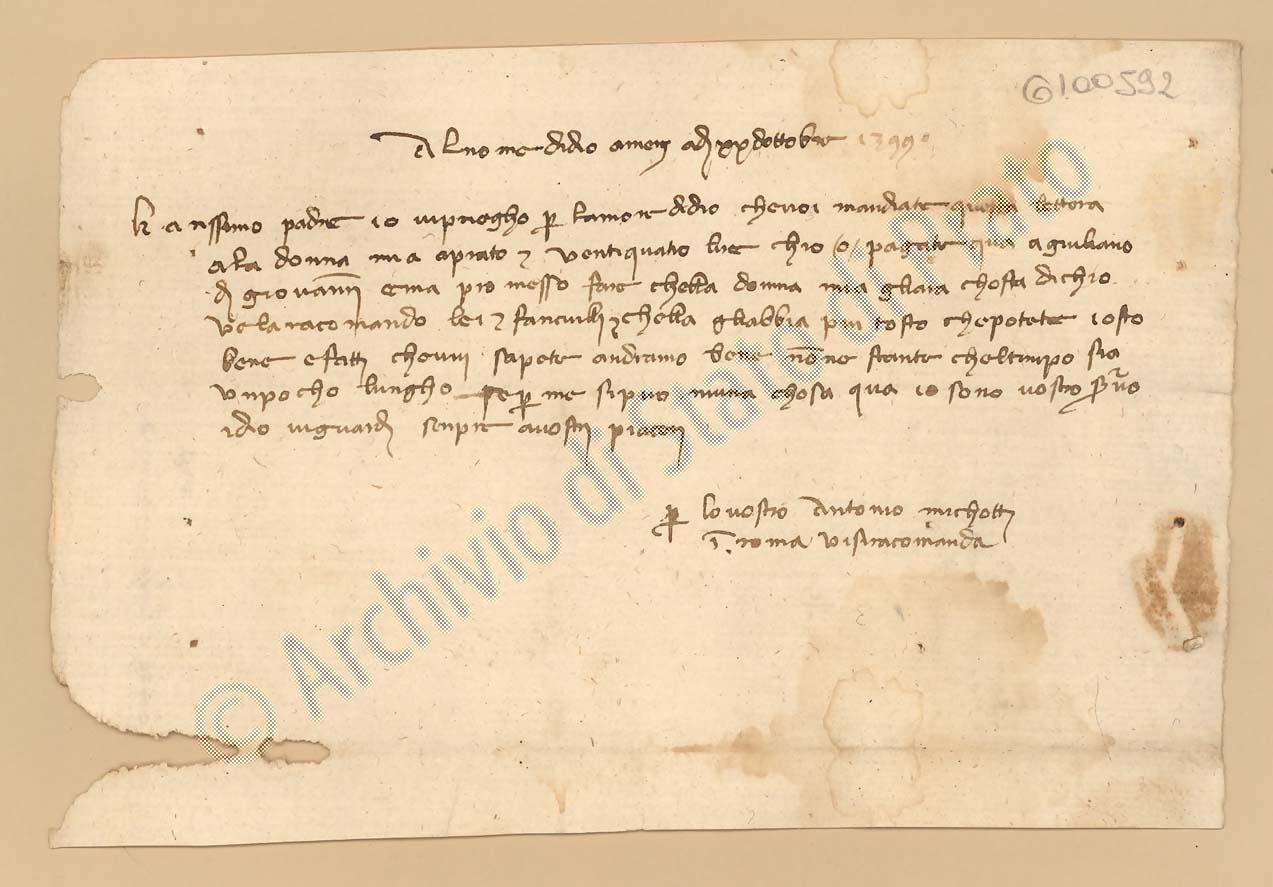 6100592
Al nome didio amen adi xx dottobre 1399
karissimo padre io vi priegho per lamore didio che voi mandiate questa lettera
ala donna mia a prato e ventiquatro lire chio o pagate qua a giuliano
di giovanni e ma promesso fare chella donna mia gliara chosta di chio
ve la racomando lei e fanciulli e chella gliabbia piu tosto che potete io sto
bene e fatti che vvi sapete andranno bene nonne stante chel tenpo sia
un pocho lungho se per me si puo niuna chosa qua io sono vostro servo
idio vi guardi senpre a vostri piaceri
per lo vostro Antonio micholi
in roma vi si racomanda
© Archivio di Stato di Prato